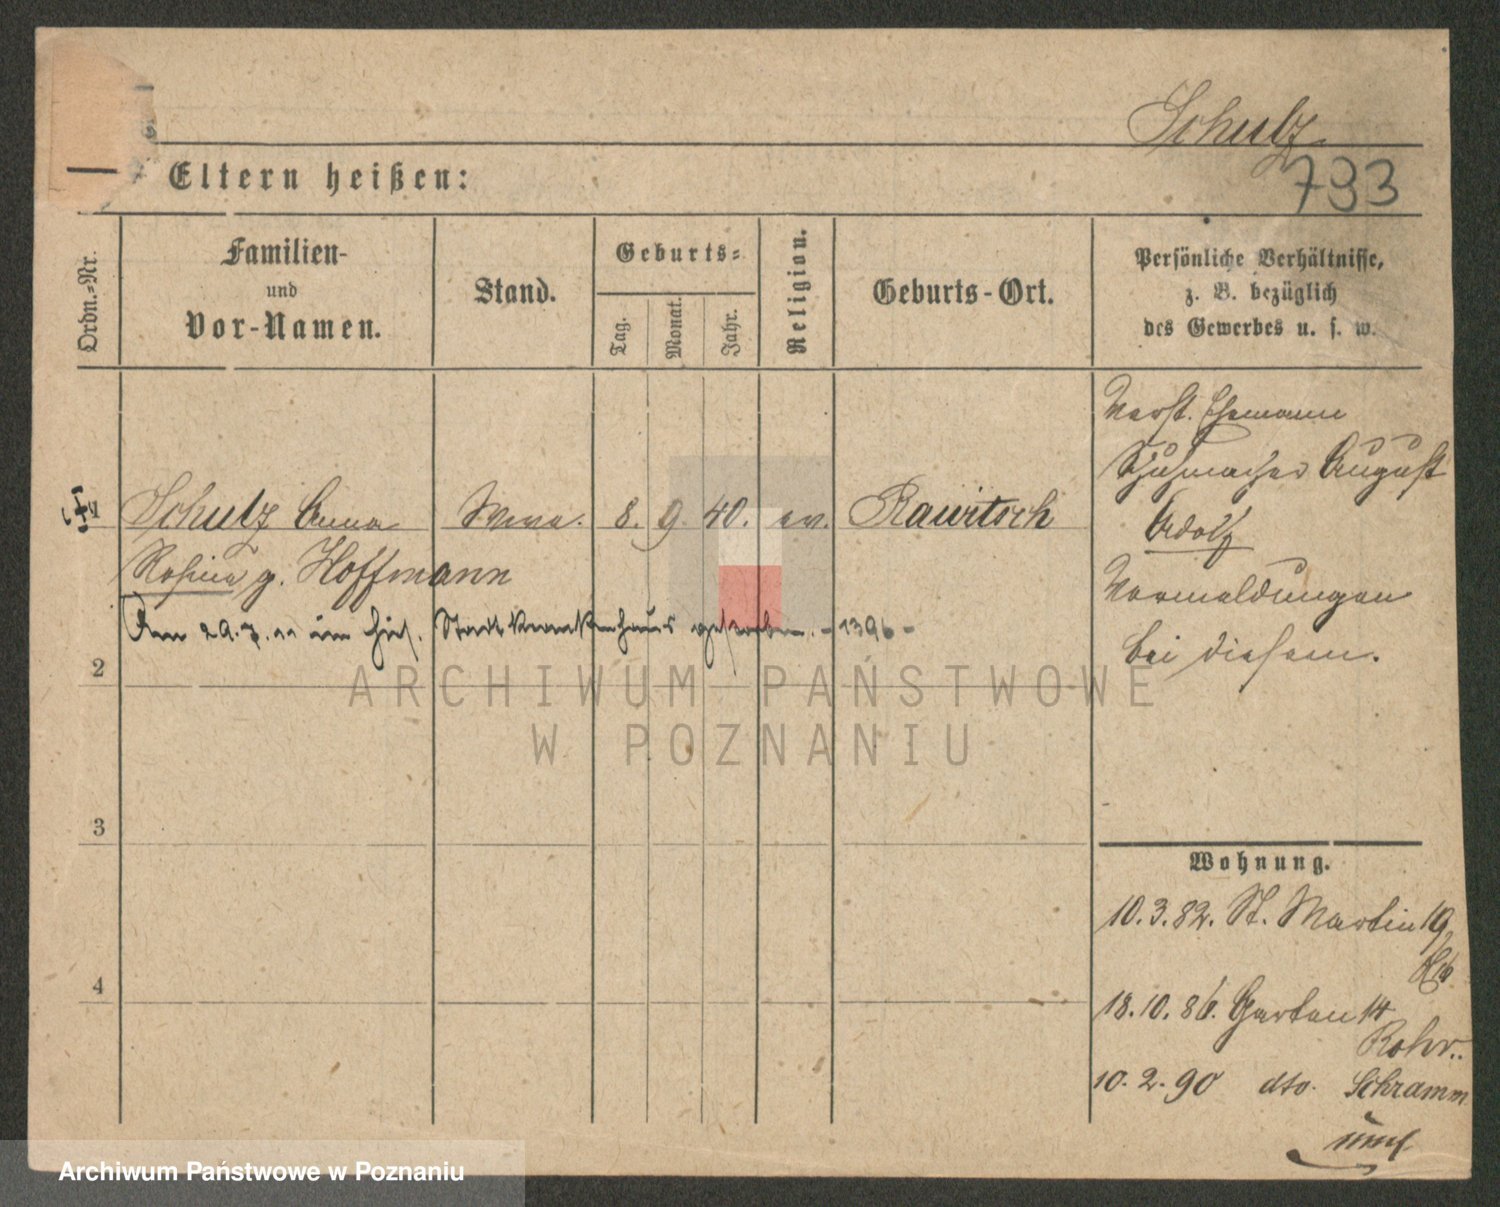 Schulz
793
Eltern heißen:
Ordn.-Nr.
Familien-
und
Vor-Namen.
Stand.
Geburts-
Tag.
Monat.
Jahr.
Religion.
Geburts-Ort.
Persönliche Verhältnisse,
z. B. bezüglich
des Gewerbes u. s. w.
1 Schulz Anna Wwe. 8. 9. 40. ev. Rawitsch
Rosina g. Hoffmann
Am 29.7.11 im hies. Stadtkrankenhaus gestorben. - 1396 -
2
3
4
Verst. Ehemann
Schuhmacher August
Adolf
Vormeldungen
bei diesem.
Wohnung.
10.3.82. St. Martin 19
18.10.86. Garten 14
Rohr..
10.2.90 dto. Schramm
umf
ARCHIWUM PAŃSTWOWE
W POZNANIU
Archiwum Państwowe w Poznaniu